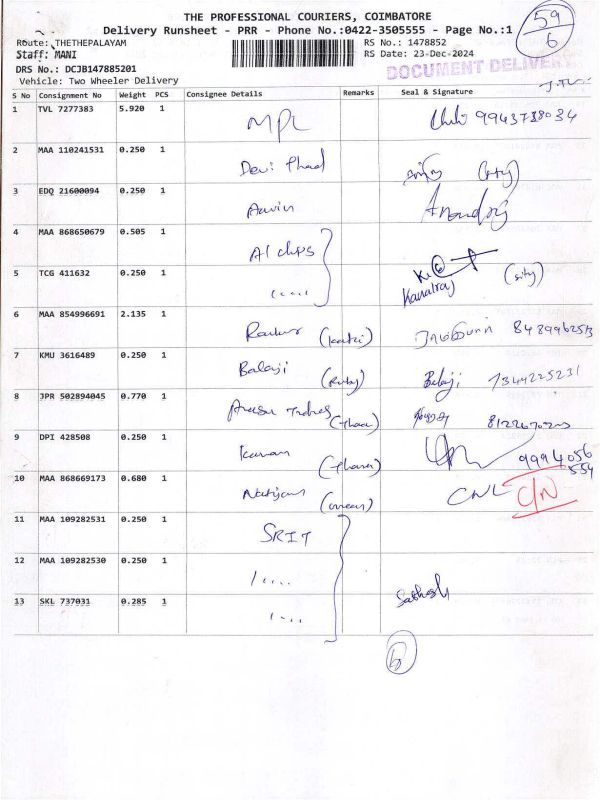 THE PROFESSIONAL COURIERS, COIMBATORE
Delivery Runsheet - PRR - Phone No.:0422-3505555 - Page No.:1
59
6
Route: THETHEPALAYAM
RS No.: 1478852
Staff: MANI
RS Date: 23-Dec-2024
DRS No.: DCJB147885201
DOCUMENT DELIVERY
Vehicle: Two Wheeler Delivery
S No Consignment No Weight PCS Consignee Details Remarks Seal & Signature
1 TVL 7277383 5.920 1 MPL 9943738034
2 MAA 110241531 0.250 1 Devi (sity)
3 EDQ 21600094 0.250 1 Aavin
4 MAA 868650679 0.505 1 A1 chips
5 TCG 411632 0.250 1 ..... Kanalraj (sity)
6 MAA 854996691 2.135 1 8489962513
7 KMU 3616489 0.250 1 Balaji Balaji 7344225231
8 JPR 502894045 0.770 1
9 DPI 428508 0.250 1 9994056
554
10 MAA 868669173 0.680 1 CNL C/N
11 MAA 109282531 0.250 1 SRIT
12 MAA 109282530 0.250 1 ....
13 SKL 737031 0.285 1 .... Sathish
6